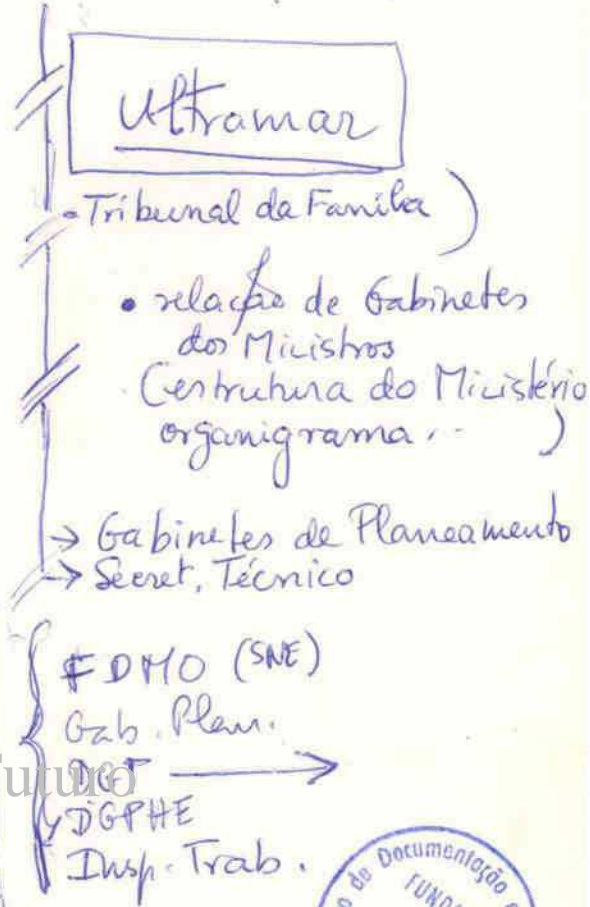 Ultramar
• Tribunal da Família )
• relação de Gabinetes
dos Ministros
(estrutura do Ministério
organigrama... )
→ Gabinetes de Planeamento
→ Secret. Técnico
FDMO (SNE)
Gab. Plan.
DGT →
DGPHE
Insp. Trab.
Futuro
de Documentação e